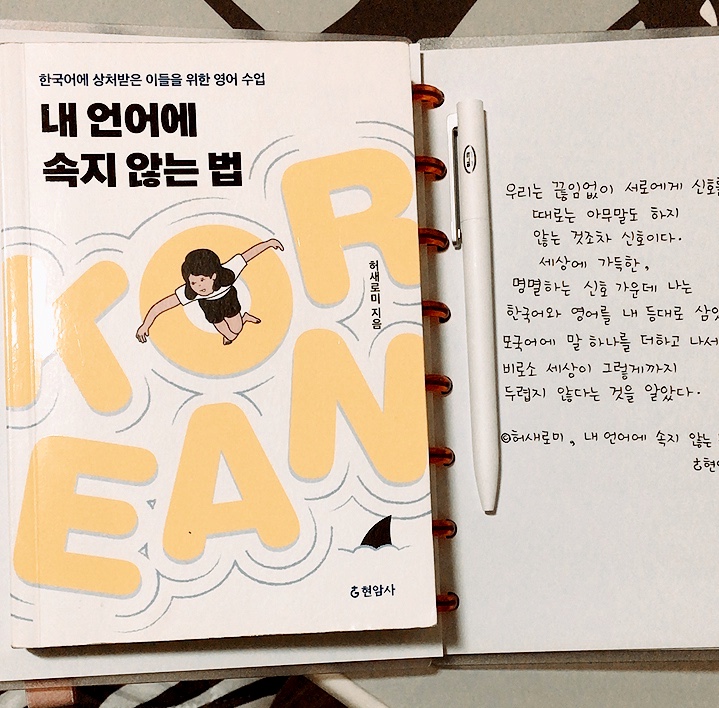 한국어에 상처받은 이들을 위한 영어 수업
내 언어에
속지 않는 법
KOR
EAN
허새로미 지음
현암사
우리는 끊임없이 서로에게 신호를
때로는 아무말도 하지
않는 것조차 신호이다.
세상에 가득한,
명멸하는 신호 가운데 나는
한국어와 영어를 내 등대로 삼았
모국어에 말 하나를 더하고 나서
비로소 세상이 그렇게까지
두렵지 않다는 것을 알았다.
©허새로미, 내 언어에 속지 않는
현암